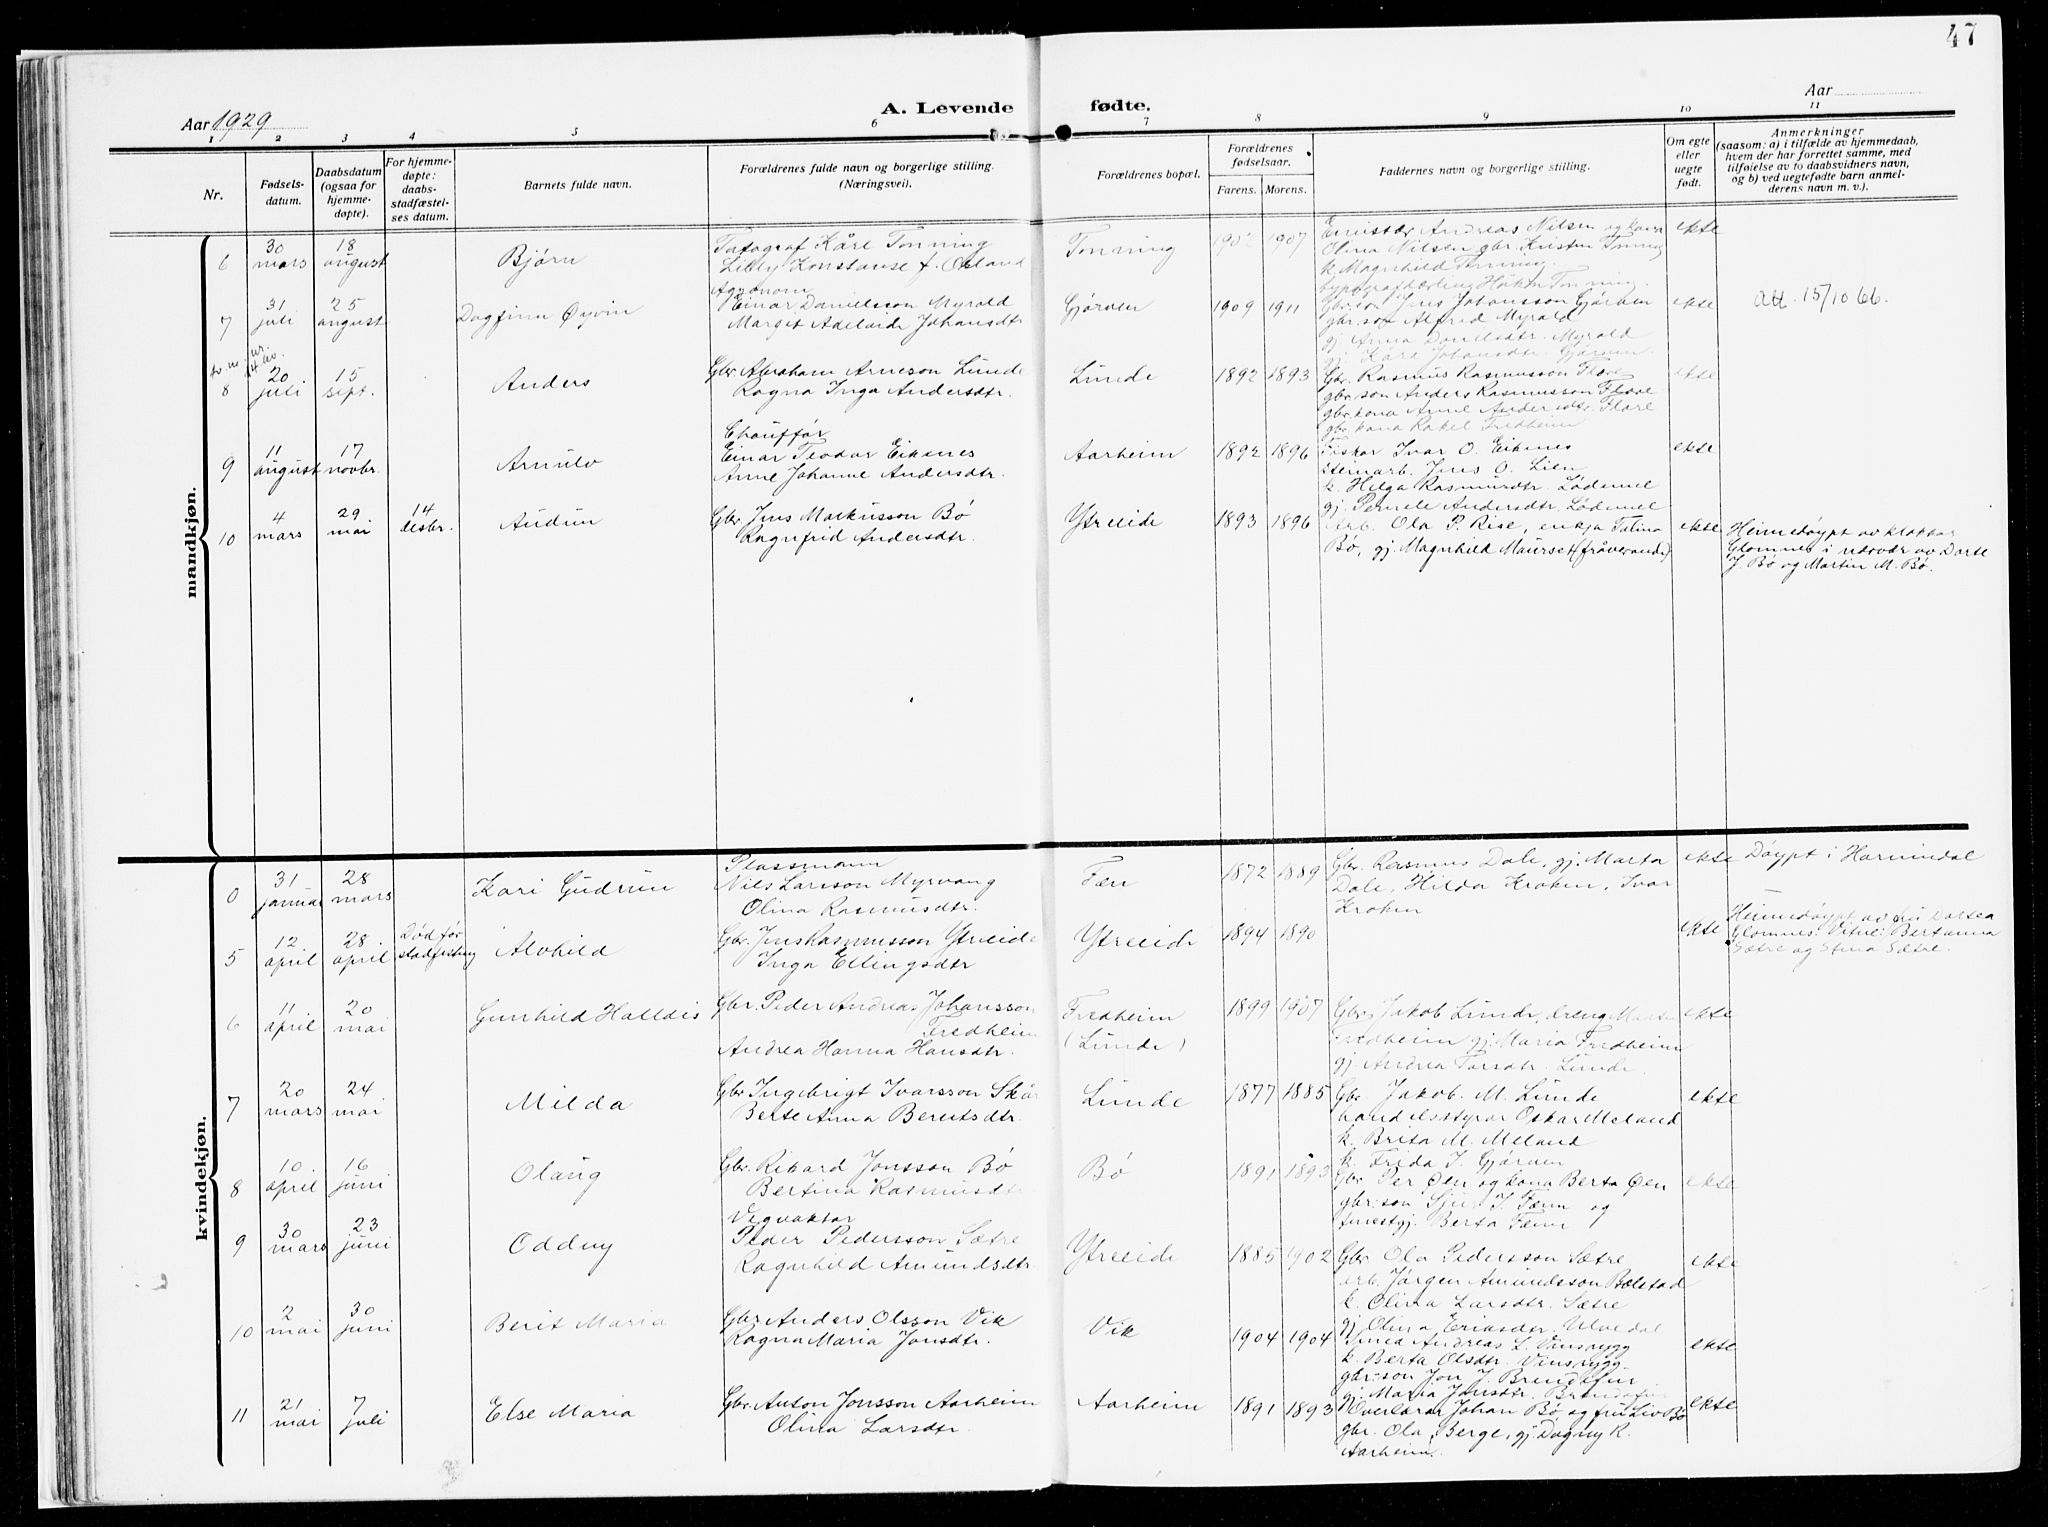 47
Aar 1929
A. Levende fødte.
Aar
1 2 3 4 5 6 7 8 9 10 11
Nr.
Fødsels-
datum.
Daabsdatum
(ogsaa for
hjemme-
døpte).
For hjemme-
døpte:
daabs-
stadfæstel-
ses datum.
Barnets fulde navn.
Forældrenes fulde navn og borgerlige stilling.
(Næringsvei).
Forældrenes bopæl.
Forældrenes
fødselsaar.
Farens. Morens.
Faddernes navn og borgerlige stilling.
Om egte
eller
uegte
født.
Anmerkninger
(saasom: a) i tilfælde av hjemmedaab,
hvem der har forrettet samme, med
tilføielse av to daabsvidners navn,
og b) ved uegtefødte barn anmel-
derens navn m. v.).
mandkjøn.
6
30
mars
18
august
Bjørn
Fotograf Kåre Tonning
Lilly Konstanse f.
Tonning
1902 1907
Andreas Nilsen og kona
Olina Nilsen gbr. Kristen Tonning
k. Magnhild Tonning
typograflærling Håkon Tonning
ekte
7
31
juli
25
august
Dagfinn Øyvin
Agronom
Einar Danielsson Myrold
Margit Adelaide Johansdtr
Gjørven
1909 1911
Gbr. son Jens Johansson Gjørven
gbr. son Alfred Myrold
gj. Anna Myrold
gj. Kåra Johansdtr. Gjørven
ekte
Att. 15/10 66.
8
20
juli
15
sept.
Anders
Gbr. Abraham Arneson Lunde
Ragna Inga Andersdtr.
Lunde
1892 1893
Gbr. Rasmus Rasmusson Flore
gbr. son Anders Rasmusson Flore
gbr. kona Anne Andersdtr. Flore
gbr. kona Rakel Fredheim
ekte
9
11
august
17
novbr.
Arnulv
Chauffør
Einar Teodor Eikenes
Anne Johanne Andersdtr.
Aarheim
1892 1896
Ivar O. Eikenes
steinarb. Jens O. Lien
k. Helga Rasmusdtr. Lødemel
gj. Pernele Andersdtr. Lødemel
ekte
10
4
mars
29
mai
14
desbr.
Audun
Gbr. Jens Markusson Bø
Ragnfrid Andersdtr.
Ytreeide
1893 1896
Arb. Ola P. Rise, enkja Talina
Bø, gj. Magnhild Maurset (fråverande)
ekte
Heimedøypt av klokkar
Glomnes i nærvær av Dorte
J. Bø og Martin M. Bø.
kvindekjøn.
0
31
januar
28
mars
Kari Gudrun
Plassmann
Nils Larsson Myrvang
Olina Rasmusdtr.
Fæn
1872 1889
Gbr. Rasmus Dale, gj. Marta
Dale, Hilda Kroken, Ivar
Kroken
ekte
Døypt i Hornindal
5
12
april
28
april
Død før
stadfesting
Alvhild
Gbr. Jens Rasmusson Ytreeide
Inga Ellingsdtr
Ytreeide
1894 1890
ekte
Heimedøypt av fru Dortea
Glomnes. Vitne: Bertanna
Sætre og Stina Sætre.
6
11
april
20
mai
Gunhild Halldis
Gbr. Peder Andreas Johansson
Fredheim
Andrea Hanna Hansdtr.
Fredheim
(Lunde)
1899 1907
Gbr. Jakob Lunde, dreng
Fredheim gj. Maria Fredheim
gj. Andrea Lunde.
ekte
7
20
mars
24
mai
Milda
Gbr Ingebrigt Ivarsson Skår
Berte Anna Berntsdtr.
Lunde
1877 1885
Gbr Jakob. M. Lunde
handelsstyrar Oskar Meland
k. Brita M. Meland
k. Frida J. Gjørven
ekte
8
10
april
16
juni
Olaug
Gbr. Rikard Jonsson Bø
Bertina Rasmusdtr
Bø
1891 1893
Gbr Per Øen og kona Berta Øen
gbr. son Sjur J. Fænn og
tenestgj. Berta Fænn
ekte
9
30
mars
23
juni
Oddny
Vegvaktar
Peder Pedersson Sætre
Ragnhild Amundsdtr.
Ytreeide
1885 1902
Gbr Ola Pedersson Sætre
arb. Jørgen Amundsson Bolstad
k. Olina Larsdtr. Sætre
gj. Olina Eriksdtr. Ulvedal
ekte
10
2
mai
30
juni
Berit Maria
Gbr Anders Olsson Vik
Ragna Maria Jonsdtr.
Vik
1904 1904
Andreas L. Vinsrygg
k. Berta Olsdtr. Vinsrygg
gbr-son Jon J. Brendefur
gj. Maria Jonsdtr. Brendefur
ekte
11
21
mai
7
juli
Else Maria
Gbr. Anton Jonsson Aarheim
Olina Larsdtr.
Aarheim
1891 1893
Overlærar Johan Bø og fru Liv Bø
gbr. Ola Berge, gj. Dagny K.
Aarheim.
ekte